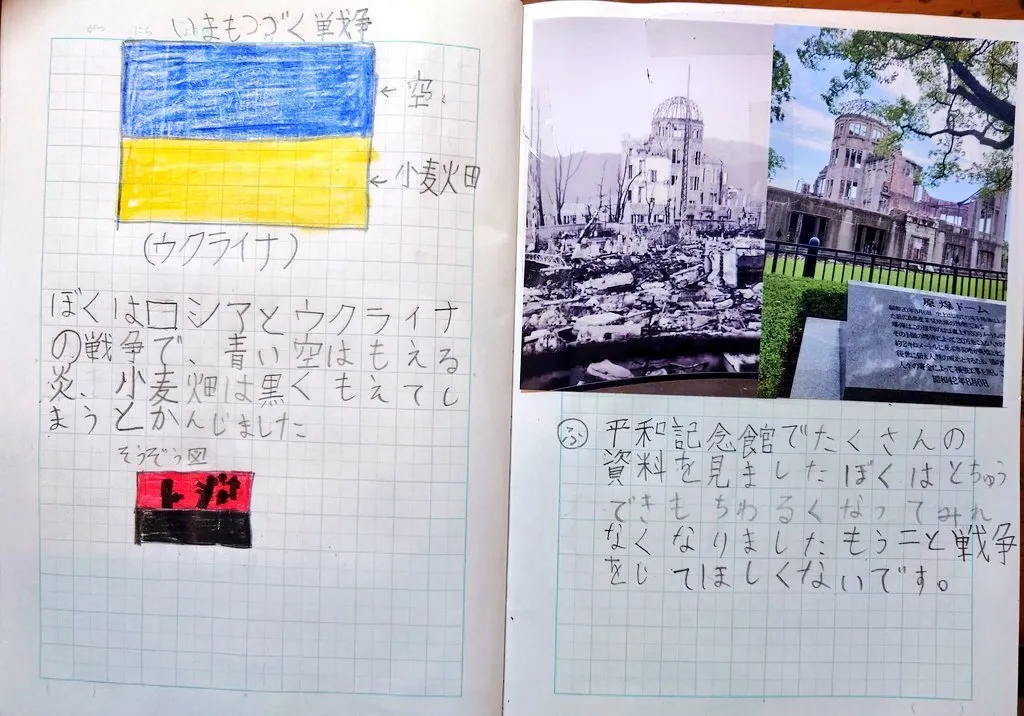 いまもつづく戦争
←空
←小麦火田
(ウクライナ)
ぼくはロシアとウクライナ
の戦争で、青い空はもえる
炎、小麦畑は黒くもえてし
まうとかんじました
そうぞう図
原爆ドーム
昭和42年8月6日
ふ 平和記念館でたくさんの
資料を見ましたぼくはとちゅう
できもちわるくなってみれ
なくなりましたもう二と戦争
をしてほしくないです。